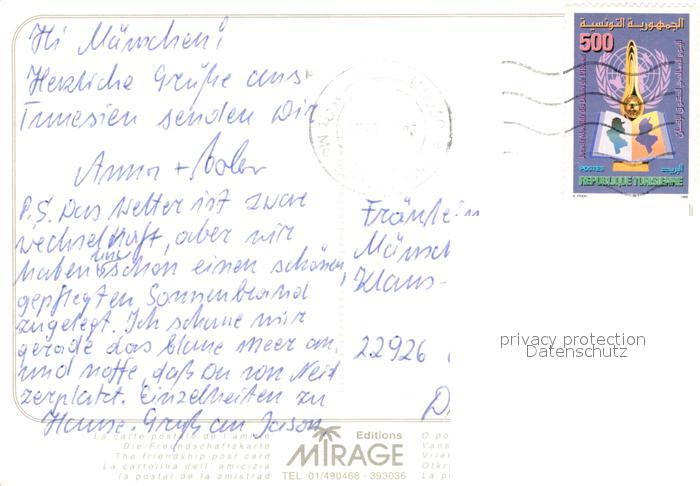 Hi Mänschen!
Herzliche Grüße aus
Tunesien senden Dir
Anna +
P.S. Das Wetter ist zwar
wechselhaft, aber wir
haben uns schon einen schönen,
gepflegten Sonnenbrand
zugelegt. Ich schaue mir
gerade das blaue Meer an
und hoffe, daß Du von Neid
zerplatzt. Einzelheiten zu
Hause. Gruß an Jason
Fräulein
Mänsch
Klaus-
22926
D
الجمهورية التونسية
500
POSTES البريد
REPUBLIQUE TUNISIENNE
1998
privacy protection
Datenschutz
La carte postale de l'amitié
Die Freundschaftskarte
The friendship post card
La cartolina dell' amicizia
la postal de la amistrad
Editions
MIRAGE
TEL.:01/490468 - 393036
O po
Vans
Vrie
Otkri
La